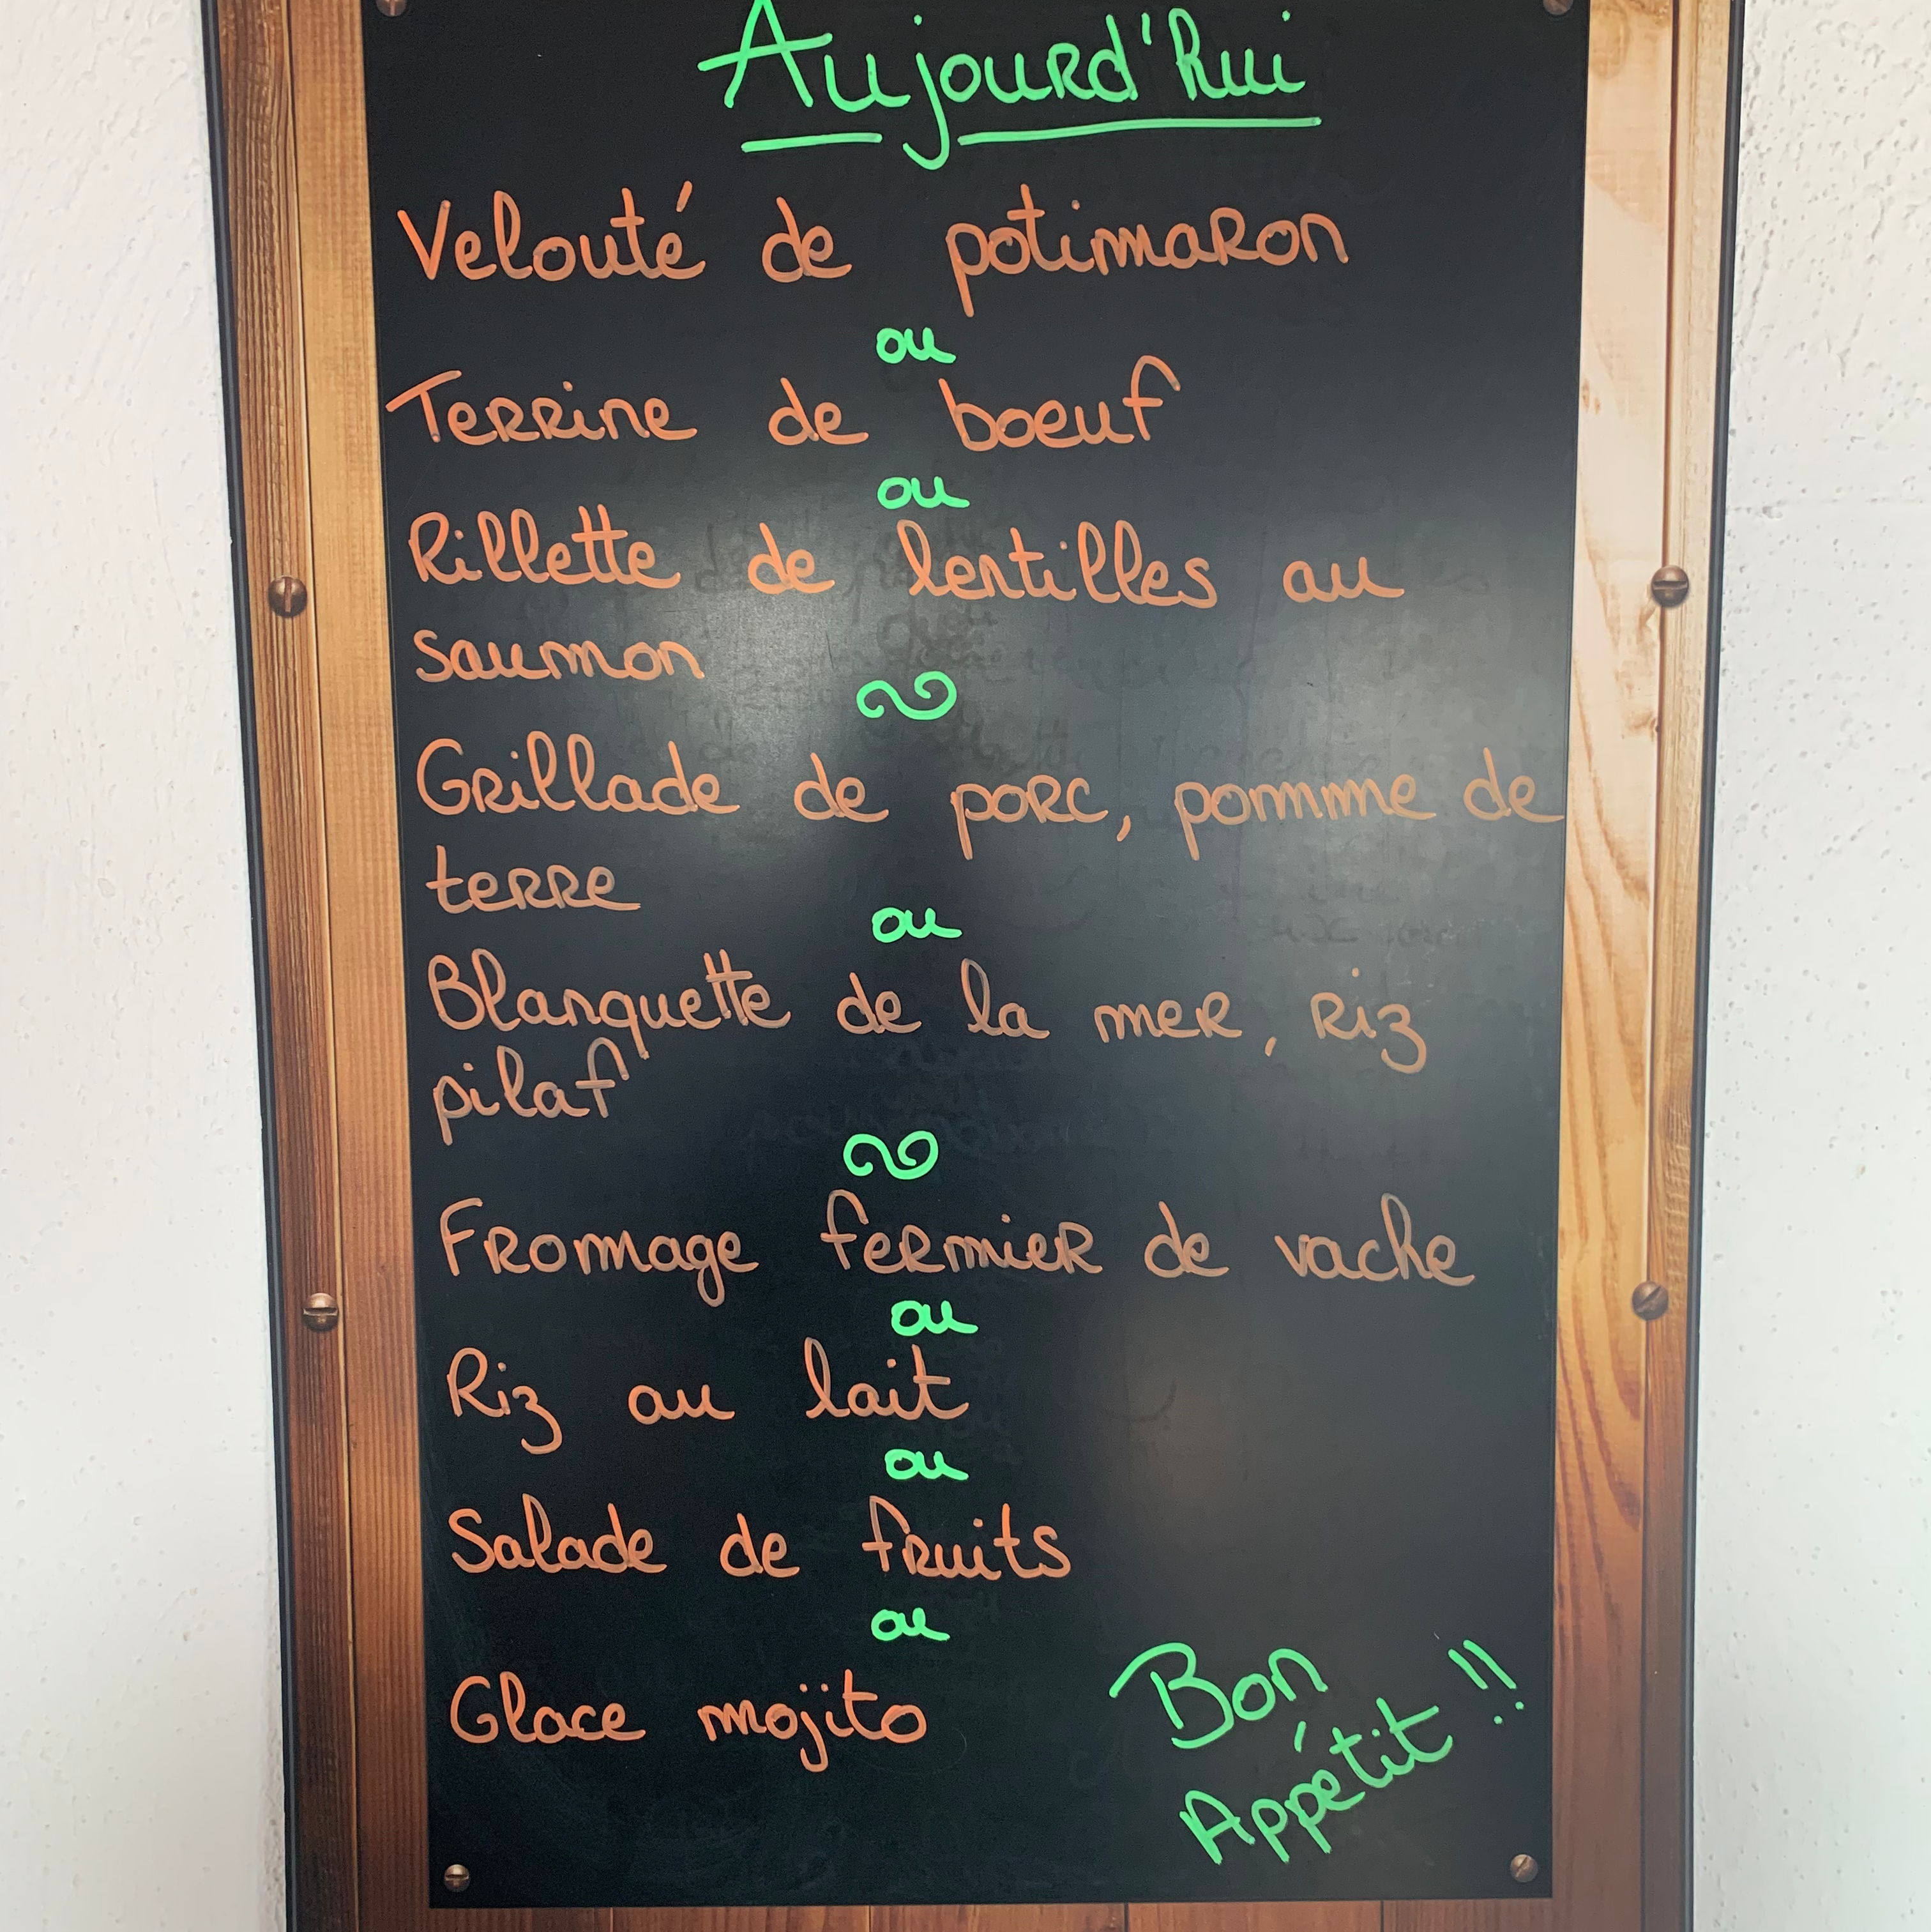 Aujourd'hui
Velouté de potimaron
ou
Terrine de boeuf
ou
Rillette de lentilles au
saumon
Grillade de porc, pomme de
terre
ou
Blanquette de la mer, riz
pilaf
Fromage fermier de vache
ou
Riz au lait
ou
Salade de fruits
ou
Glace mojito
Bon
Appétit !!